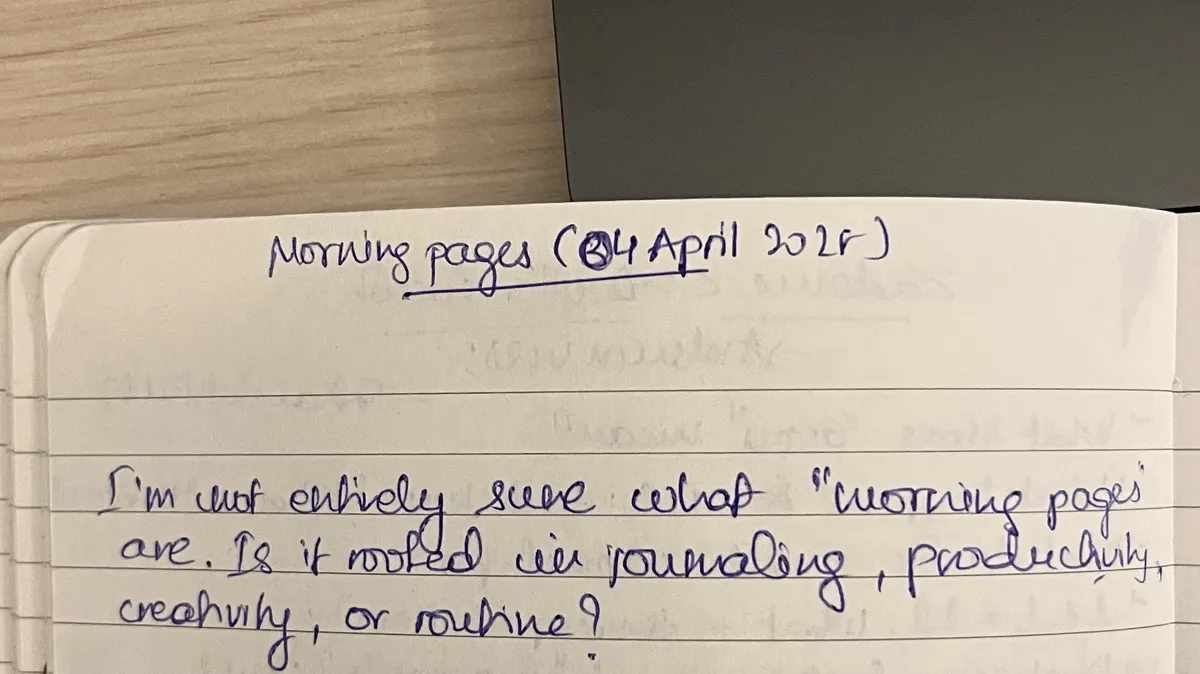 Morning pages (04 April 2025)
I'm not entirely sure what "morning pages"
are. Is it rooted in journaling, productivity,
creativity, or routine?